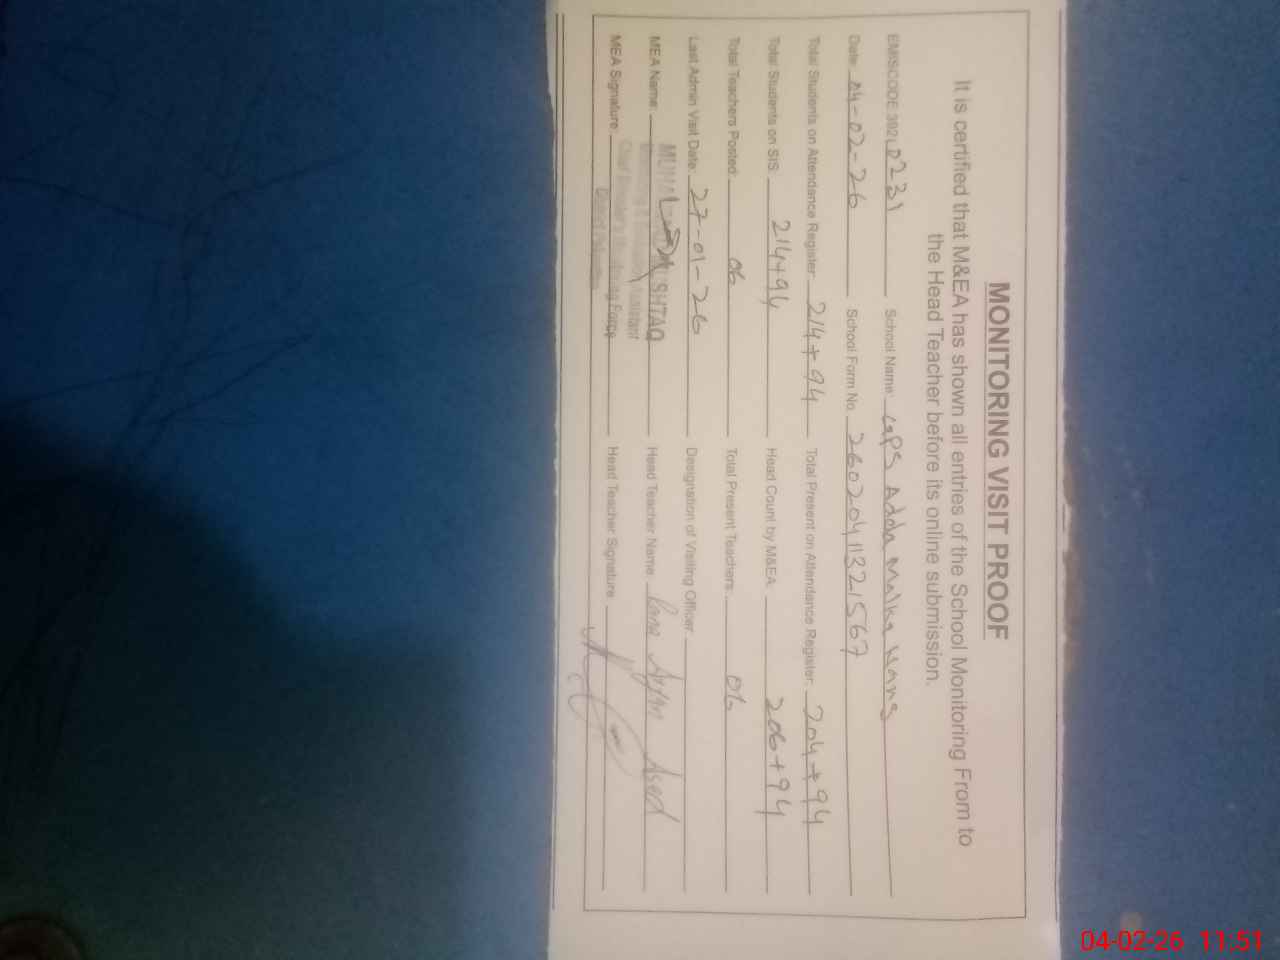 MONITORING VISIT PROOF
It is certified that M&EA has shown all entries of the School Monitoring From to
the Head Teacher before its online submission.
EMISCODE 39210231 School Name: GPS Adda Malka Hans
Date: 04-02-26 School Form No. 26020411321567
Total Students on Attendance Register: 214+94 Total Present on Attendance Register: 204+94
Total Students on SIS: 214+94 Head Count by M&EA: 206+94
Total Teachers Posted: 06 Total Present Teachers: 06
Last Admin Visit Date: 27-01-26 Designation of Visiting Officer:
MEA Name: MUSHTAQ Head Teacher Name Rana Asad
Assistant
MEA Signature: Chief Monitoring Force Head Teacher Signature
04-02-26 11:51